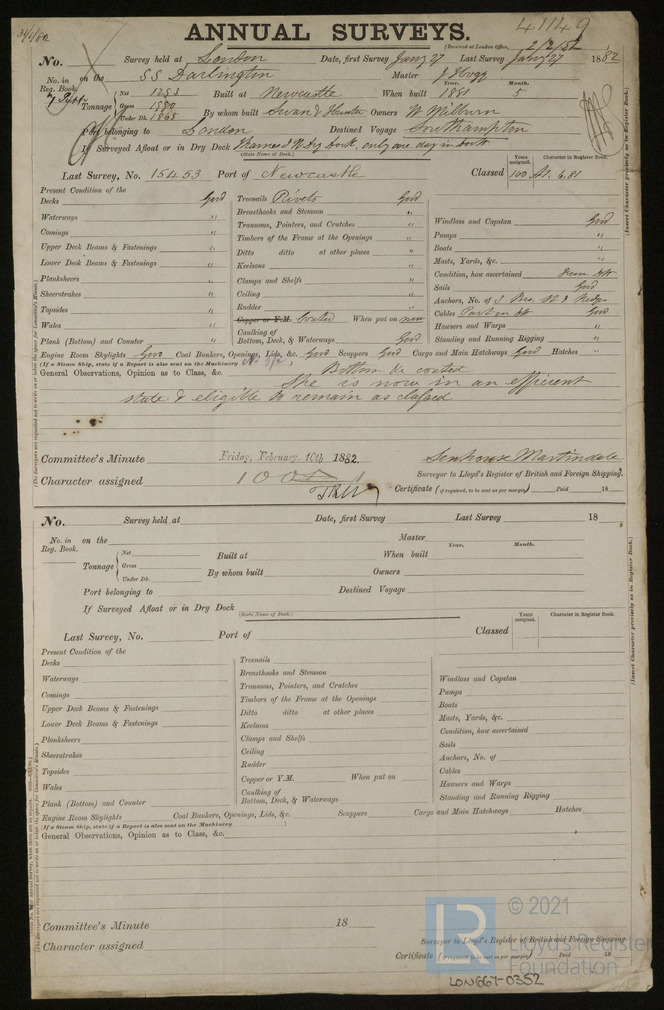 ANNUAL SURVEYS.
41149
(Received at London Office, 2/2/82
No. Survey held at London Date, first Survey Jany 27 Last Survey Jany 27 1882
No. in Reg. Book. on the SS Darlington Master J Hogg
Tonnage Net 1253 Gross 1990 Under Dk. 1865 Built at Newcastle When built Year. 1881 Month. 5
By whom built Swan & Hunter Owners W Milburn
Port belonging to London Destined Voyage Southampton
If Surveyed Afloat or in Dry Dock Thames I W Dry Dock, only one day in dock
(State Name of Dock.)
Last Survey, No. 15453 Port of Newcastle Classed Years assigned. 100 Character in Register Book. A1. 6.81
Present Condition of the
Decks Good Treenails Rivets Good
Waterways " Breasthooks and Stemson " Windlass and Capstan Good
Comings " Transoms, Pointers, and Crutches " Pumps "
Upper Deck Beams & Fastenings " Timbers of the Frame at the Openings " Boats "
Lower Deck Beams & Fastenings " Ditto ditto at other places " Masts, Yards, &c. "
Plankshears " Keelsons " Condition, how ascertained From
Sheerstrakes " Clamps and Shelfs " Sails Good
Topsides " Ceiling " Anchors, No. of
Wales " Rudder " Cables Part Good
Plank (Bottom) and Counter " Copper or Y.M. Coated When put on now Hawsers and Warps "
Caulking of Bottom, Deck, & Waterways Good Standing and Running Rigging "
Engine Room Skylights Good Coal Bunkers, Openings, Lids, &c. Good Scuppers Good Cargo and Main Hatchways Good Hatches "
(If a Steam Ship, state if a Report is also sent on the Machinery
General Observations, Opinion as to Class, &c. Bottom coated
She is now in an efficient
state & eligible to remain as classed
Committee's Minute Friday, February 10th 1882. Senhouse Martindale
Surveyor to Lloyd's Register of British and Foreign Shipping.
Character assigned 100A1
Certificate (if required, to be sent as per margin) Paid 18
(Insert Character precisely as in Register Book.)
No. Survey held at Date, first Survey Last Survey 18
No. in Reg. Book. on the Master
Tonnage Net Gross Under Dk. Built at When built Year. Month.
By whom built Owners
Port belonging to Destined Voyage
If Surveyed Afloat or in Dry Dock
(State Name of Dock.)
Last Survey, No. Port of Classed Years assigned. Character in Register Book.
Present Condition of the
Decks Treenails
Waterways Breasthooks and Stemson Windlass and Capstan
Comings Transoms, Pointers, and Crutches Pumps
Upper Deck Beams & Fastenings Timbers of the Frame at the Openings Boats
Lower Deck Beams & Fastenings Ditto ditto at other places Masts, Yards, &c.
Plankshears Keelsons Condition, how ascertained
Sheerstrakes Clamps and Shelfs Sails
Topsides Ceiling Anchors, No. of
Wales Rudder Cables
Plank (Bottom) and Counter Copper or Y.M. When put on Hawsers and Warps
Caulking of Bottom, Deck, & Waterways Standing and Running Rigging
Engine Room Skylights Coal Bunkers, Openings, Lids, &c. Scuppers Cargo and Main Hatchways Hatches
(If a Steam Ship, state if a Report is also sent on the Machinery )
General Observations, Opinion as to Class, &c.
Committee's Minute 18
Surveyor to Lloyd's Register of British and Foreign Shipping.
Character assigned
Certificate (if required to be sent as per margin) Paid 18
(Insert Character precisely as in Register Book.)
LR © 2021
Lloyd's Register
Foundation
LON667-0352